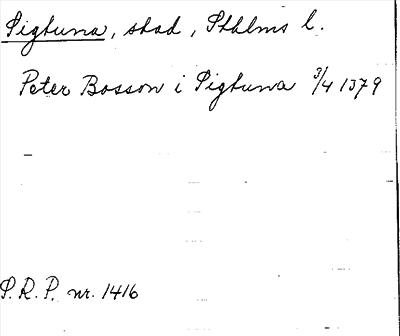 Sigtuna, stad, Sthlms l.
Peter Bosson i Sigtuna 3/4 1379
S.R.P. nr. 1416